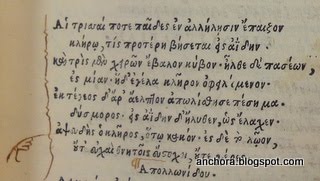 Αἱ τρισσαί ποτε παῖδες ἐν ἀλλήλησιν ἔπαιζον
κλήρω, τίς προτέρη βήσεται εἰς ἀΐδην.
καὶ τρὶς μὲν χειρῶν ἔβαλον κύβον. ἦλθε δὲ πασέων
ἐς μίαν. ἡ δ' ἐγέλα κλῆρον ὀφειλόμενον.
ἐκ τέγεος δ' ἄρ' ἄελπτον ἀπωλίσθησε πέσημα
δύσμορος. εἰς ἀΐδην δ' ἤλυθεν, ὡς ἔλαχεν.
ἀψευδὴς ὁ κλῆρος, ὅτω κακόν. ἐς δὲ τὸ λῶον,
οὔτ' εὐχαὶ θνητοῖς εὔστοχοι, οὔτε χέρες.
Ἀπολλωνίδου.
anchora.blogspot.com